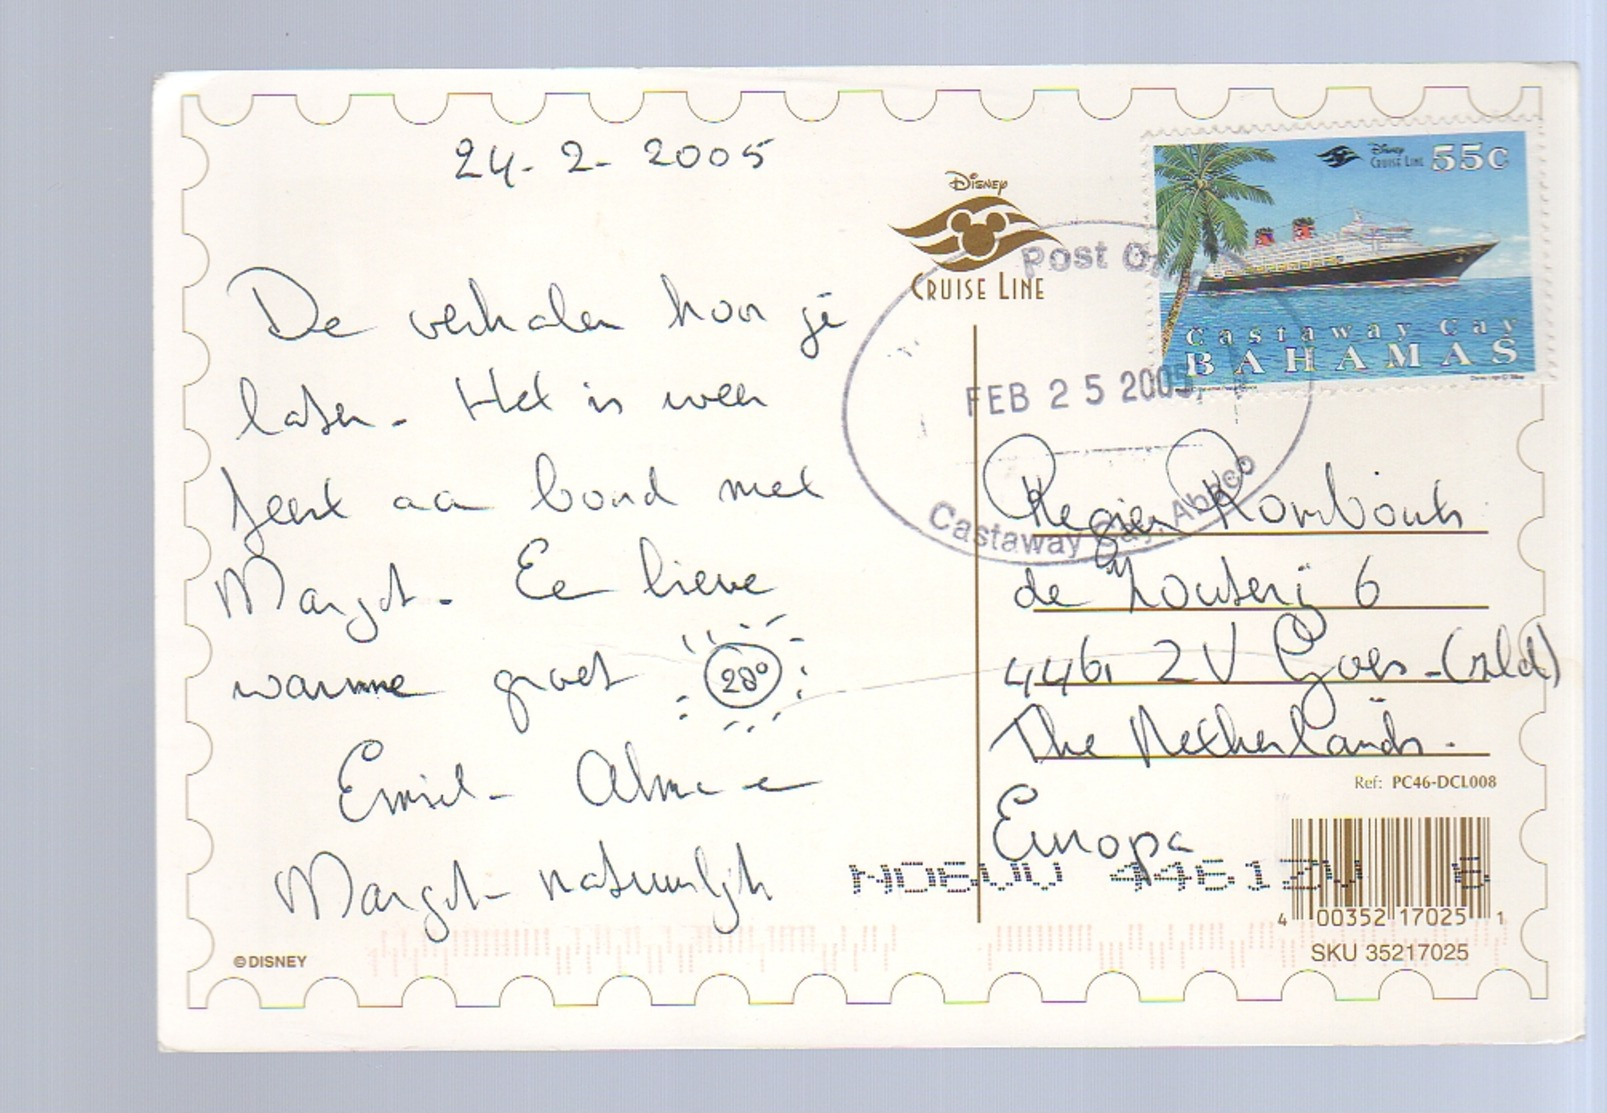 24-2-2005
De verhalen hoor je
later. Het is weer
feest aan boord met
Margot. Een lieve
warme groet 28°
Emiel-
Margot natuurlijk
© DISNEY
DISNEY
CRUISE LINE
Post Of
FEB 25 2005
Castaway Cay, Abaco
DISNEY
CRUISE LINE 55c
Castaway Cay
BAHAMAS
Rombouts
de Houterij 6
4461 ZV Goes-(zld)
The Netherlands.
Europa
Ref: PC46-DCL008
4461ZV 6
4 00352 17025 1
SKU 35217025